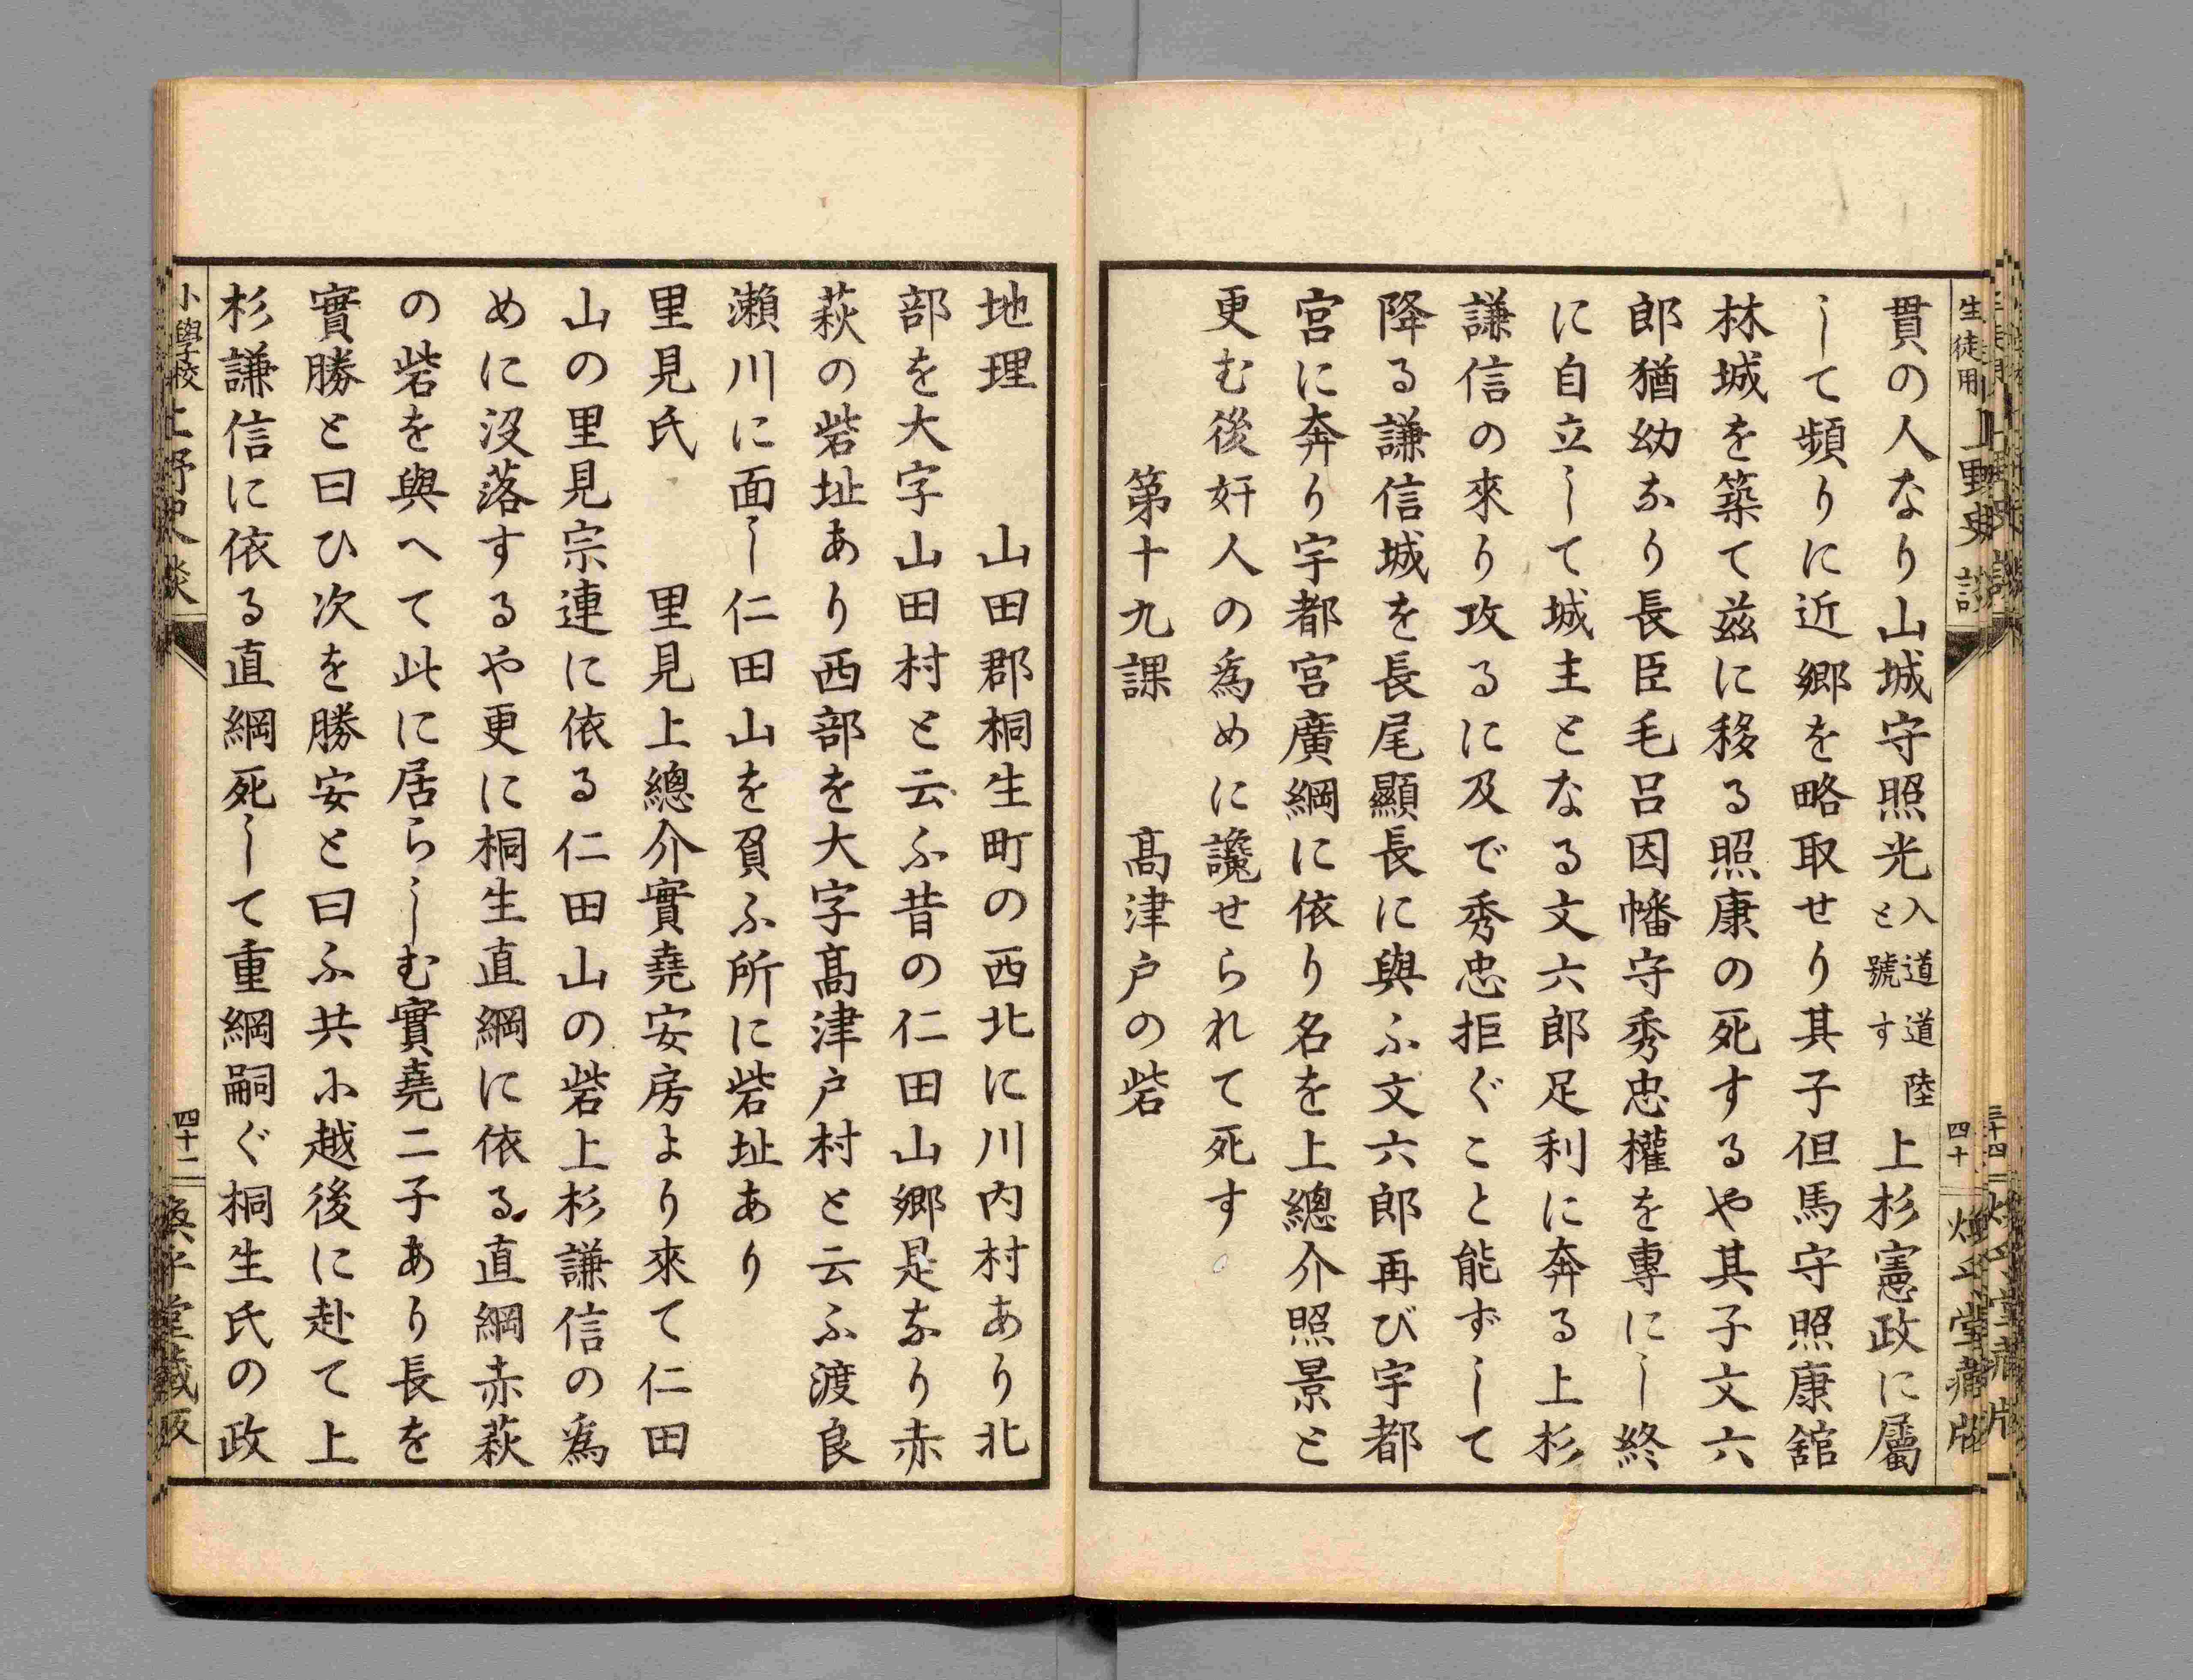 生徒用 上野史談
四十
貫の人なり山城守照光入道道陸と號す上杉憲政に屬
して頻りに近郷を略取せり其子但馬守照康舘
林城を築て茲に移る照康の死するや其子文六
郎猶幼なり長臣毛呂因幡守秀忠權を專にし終
に自立して城主となる文六郎足利に奔る上杉
謙信の來り攻るに及で秀忠拒ぐこと能ずして
降る謙信城を長尾顯長に與ふ文六郎再び宇都
宮に奔り宇都宮廣綱に依り名を上總介照景と
更む後奸人の爲めに讒せられて死す
第十九課 髙津戸の砦
地理 山田郡桐生町の西北に川内村あり北
部を大字山田村と云ふ昔の仁田山郷是なり赤
萩の砦址あり西部を大字髙津戸村と云ふ渡良
瀬川に面し仁田山を負ふ所に砦址あり
里見氏 里見上總介實堯安房より來て仁田
山の里見宗連に依る仁田山の砦上杉謙信の爲
めに沒落するや更に桐生直綱に依る直綱赤萩
の砦を與へて此に居らしむ實堯二子あり長を
實勝と曰ひ次を勝安と曰ふ共に越後に赴て上
杉謙信に依る直綱死して重綱嗣ぐ桐生氏の政
小學校 上野史談
四十二
煥乎堂藏版